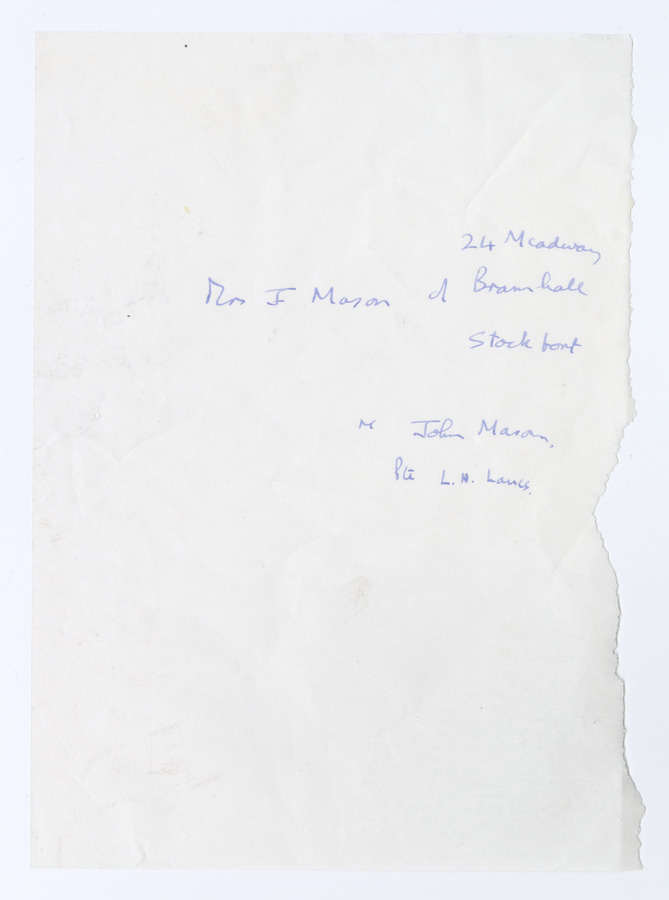 24 Meadway
Mrs J Mason of Bramhall
Stockport
John Mason.
Pte L.N. Lancs.